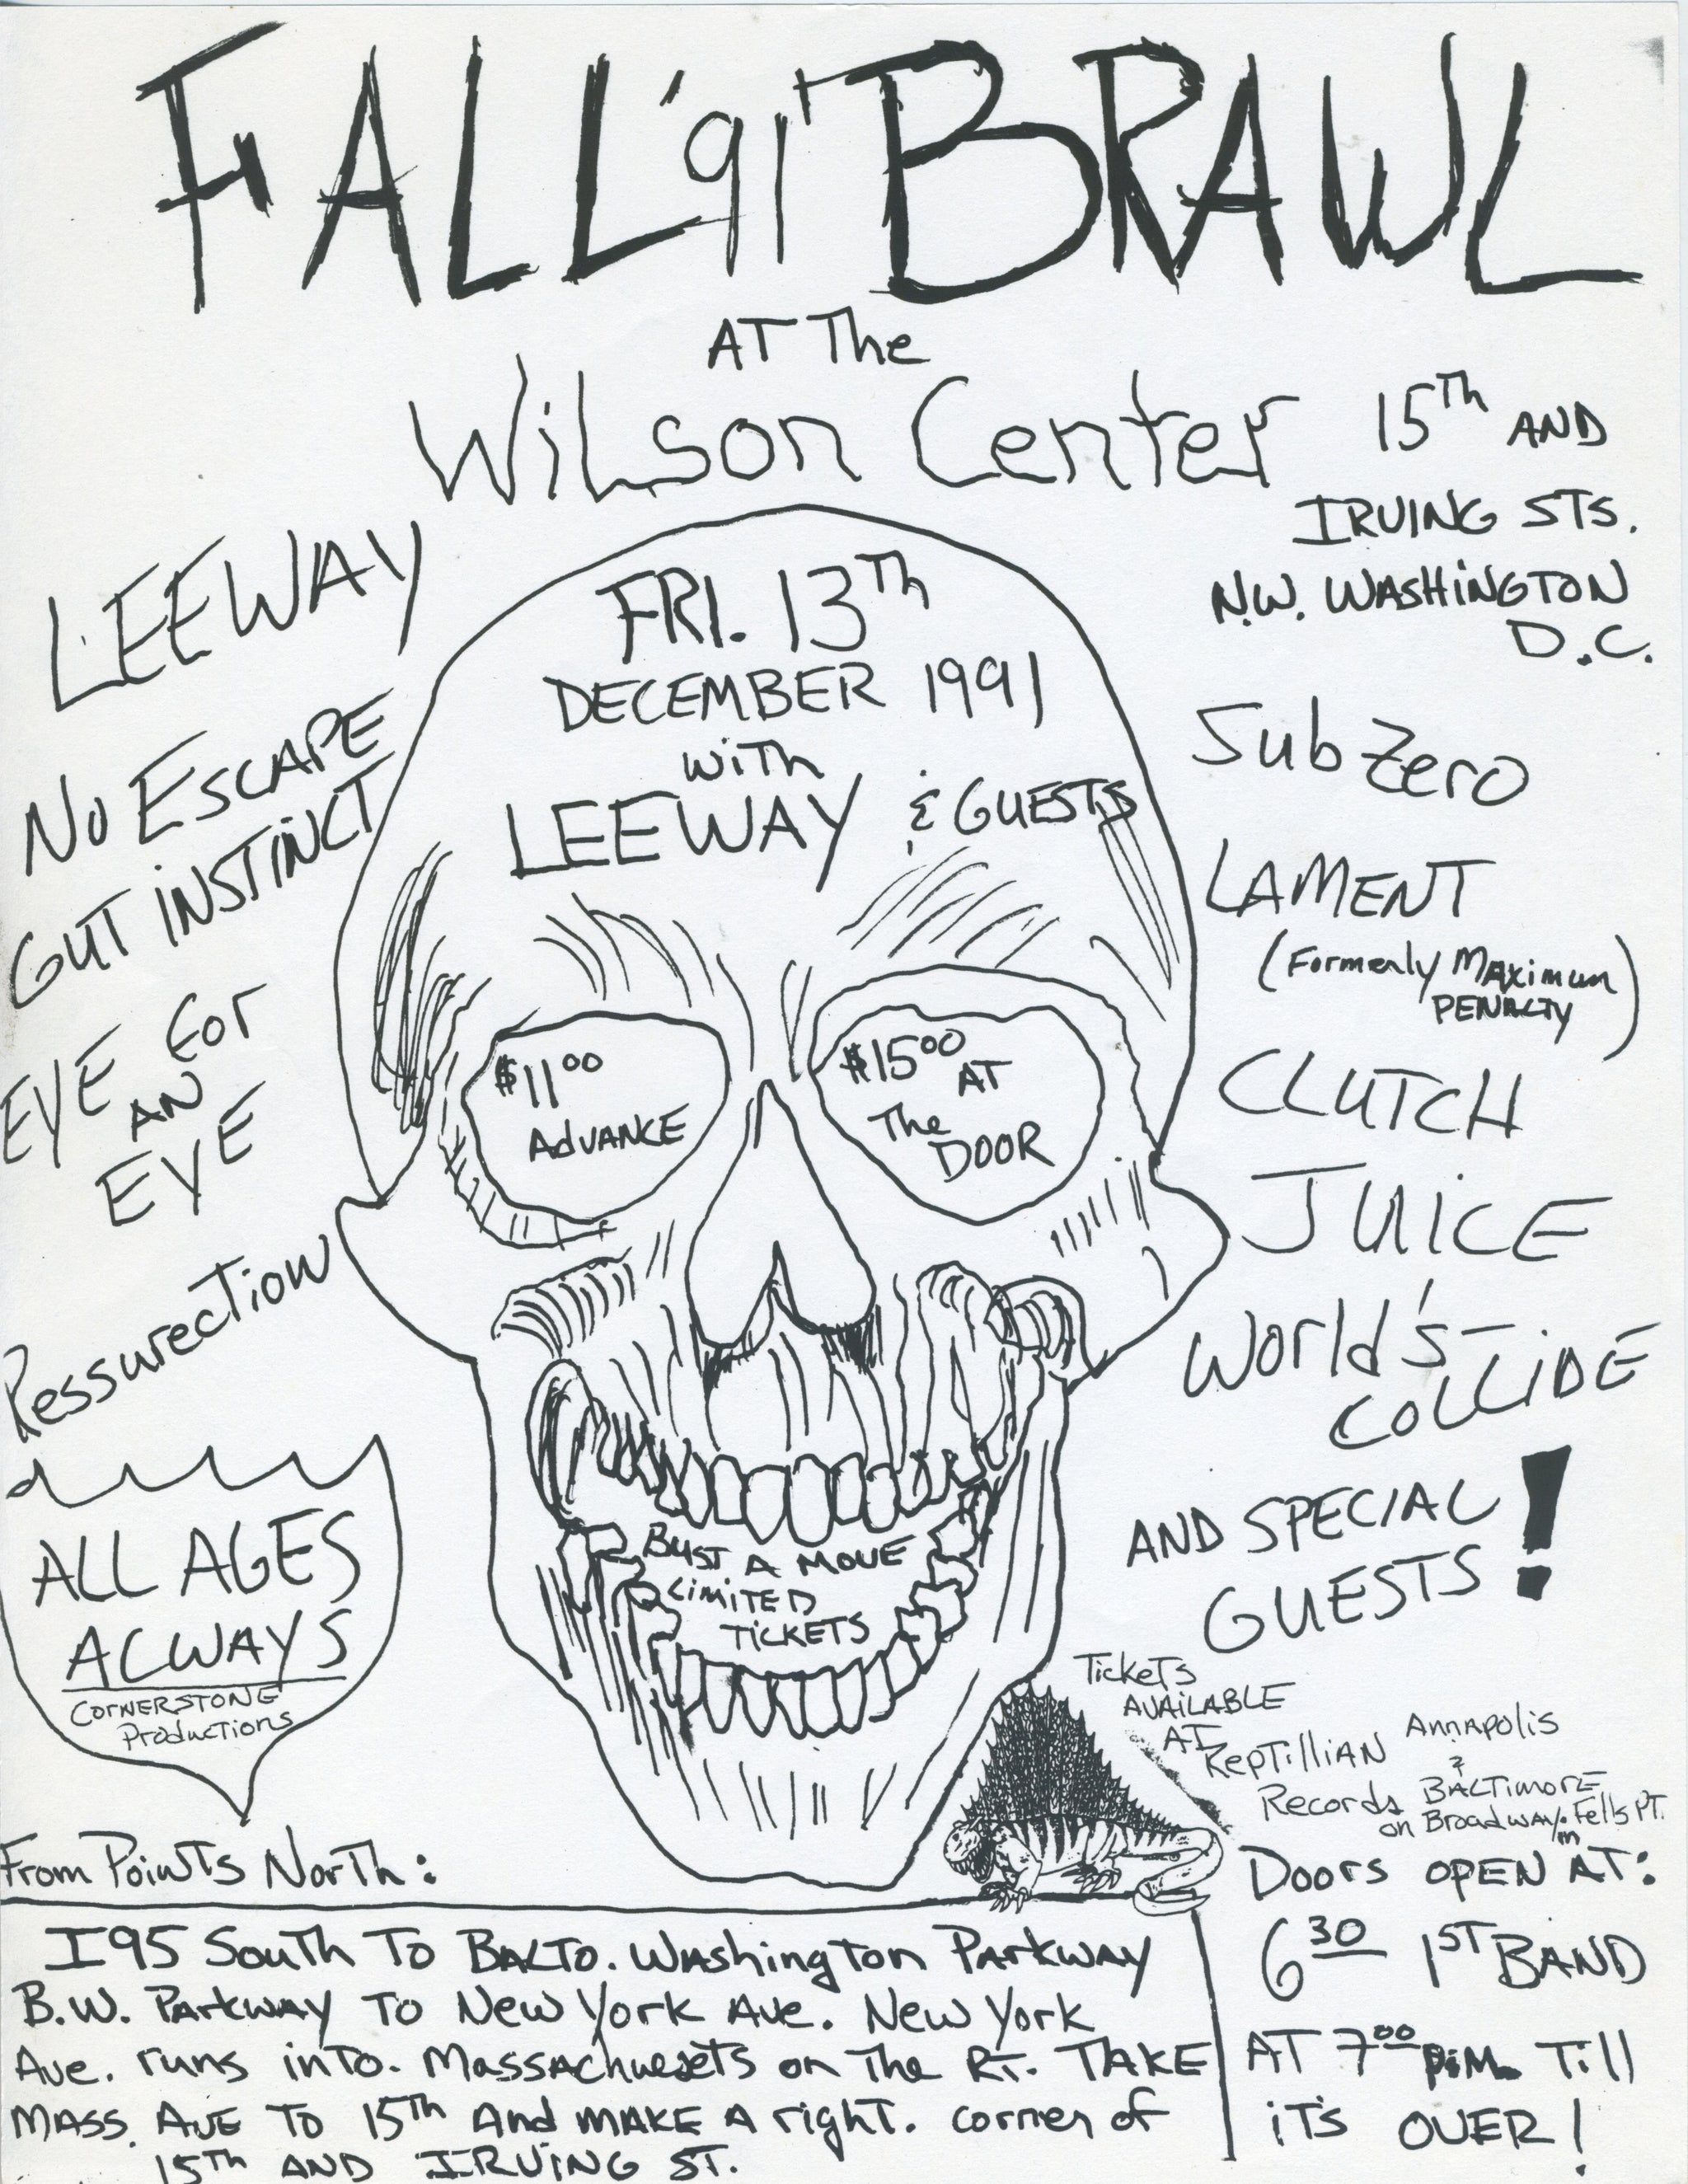 FALL '91' BRAWL
AT The
WiLson Center
15Th AND
IRVING STS.
N.W. WASHiNGTON
D.C.
LEEWAY
No ESCAPE
GUT iNSTiNCT
EYE for
AN
EYE
RessurecTion
FRI. 13Th
DECEMBER 1991
with
LEEWAY & GUESTS
$11.00
AdVANCE
$15.00 AT
The
DOOR
Sub Zero
LAMENT
(Formerly MAximum
PENALTY)
CLUTCH
JUiCE
World's
COLLiDE
AND SPECIAL
GUESTS!
BUST A MOVE
LiMiTED
TiCKETS
ALL AGES
ALWAYS
CORNERSTONE
Productions
TickeTs
AVAiLABLE
AT
RepTilliAN
Records
AnnApolis
&
BALTimorE
on BroadwAy in Fells PT.
Doors OPEN AT:
6 30 1ST BAND
AT 7 00 P.M. Till
iT'S OVER!
From PoinTs NorTh:
I95 SouTh To BALTO. WAshington PArkwAy
B.W. PArkwAy To New York Ave. New York
Ave. runs inTo. MassAchusetts on The RT. TAKE
MASS. AVE To 15Th And MAKE A right. corner of
15Th AND IRViNG ST.